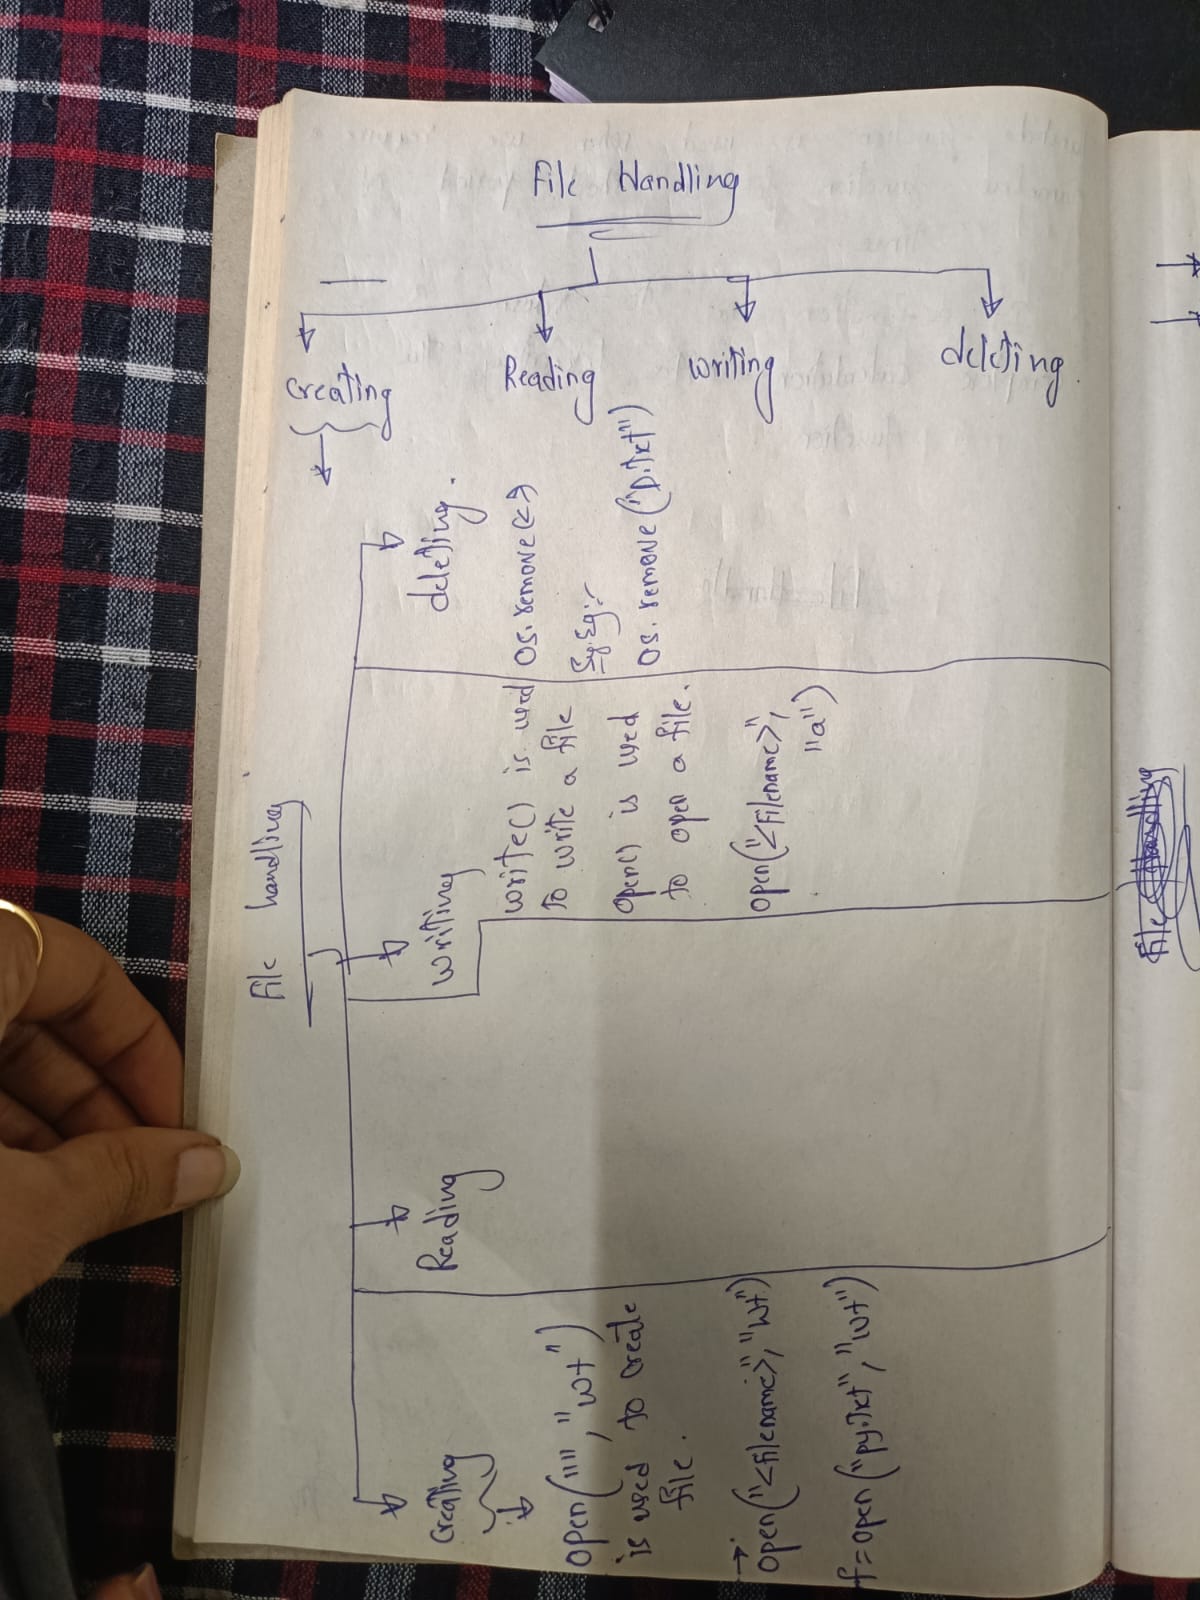 File Handling
Creating
Reading
Writing
deleting.
File handling
Creating
open("","wt")
is used to create
file.
open("<filename>","wt")
f=open("py.txt","wt")
Reading
Writing
write() is used
to write a file
open() is used
to open a file.
open("<filename>",
"a")
deleting.
os.remove(<>)
Eg:-
os.remove("D.txt")